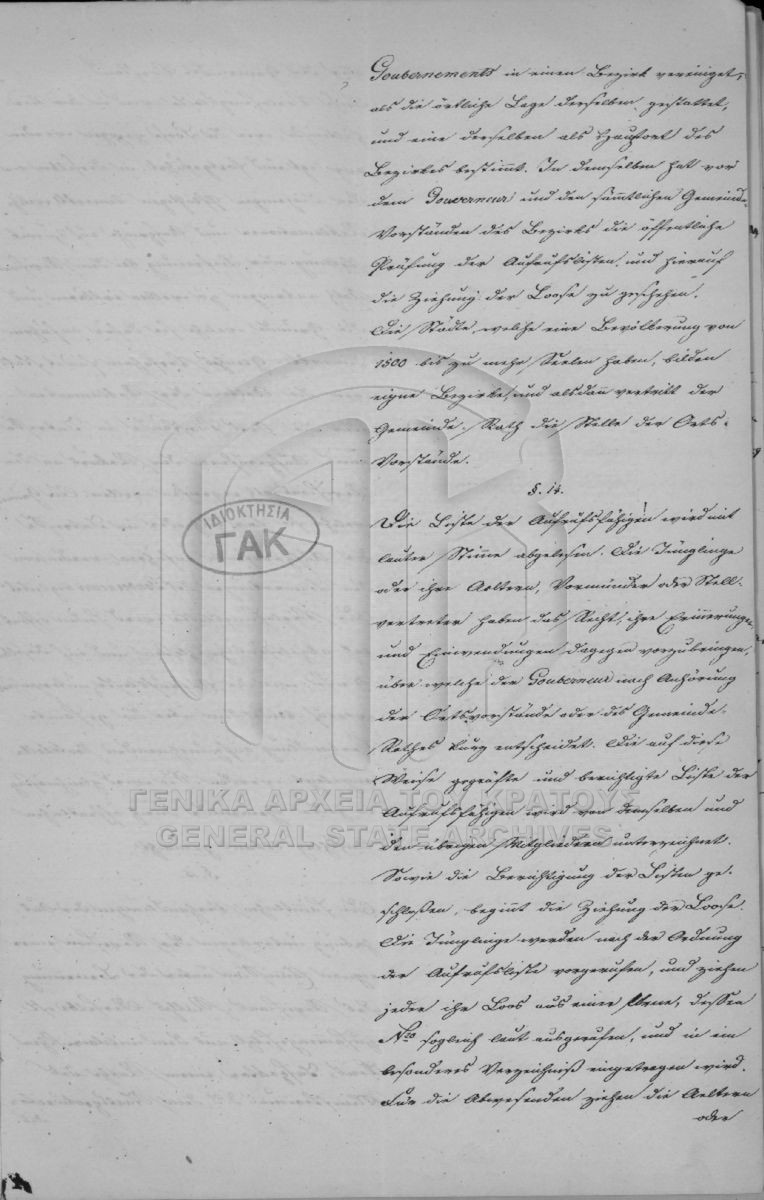 Goubernements in einen Bezirk vereiniget,
als die örtliche Lage derselben gestattet,
und eine derselben als Hauptort des
Bezirkes bestimmt. In demselben hat vor
dem Gouverneur und den sämmtlichen Gemeinde-
Vorständen des Bezirks die öffentliche
Prüfung der Aufrufslisten und hierauf
die Ziehung der Loose zu geschehen.
Die Städte, welche eine Bevölkerung von
1500 bis zu mehr Seelen haben, bilden
eigne Bezirke, und alsdann vertritt der
Gemeinde-Rath die Stelle der Orts-
Vorstände.
§. 14.
Die Liste der Aufrufsfähigen wird mit
lauter Stimme abgelesen. Die Jünglinge
oder ihre Aeltern, Vormünder oder Stell-
vertreter haben das Recht, ihre Erinnerungen
und Einwendungen dagegen vorzubringen,
über welche der Gouberneur nach Anhörung
der Ortsvorstände oder des Gemeinde-
Rathes kurz entscheidet. Die auf diese
Weise geprüfte und berichtigte Liste der
Aufrufsfähigen wird von demselben und
den übrigen Mitgliedern unterzeichnet.
Sowie die Berichtigung der Listen ge-
schloßen, beginnt die Ziehung der Loose.
Die Jünglinge werden nach der Ordnung
der Aufrufsliste vorgerufen, und ziehen
jeder ihr Loos aus einer Urne, dessen
Nro sogleich laut ausgerufen, und in ein
besonderes Verzeichniß eingetragen wird.
Für die Abwesenden ziehen die Aeltern
oder
ΙΔΙΟΚΤΗΣΙΑ
ΓΑΚ
ΓΕΝΙΚΑ ΑΡΧΕΙΑ ΤΟΥ ΚΡΑΤΟΥΣ
GENERAL STATE ARCHIVES